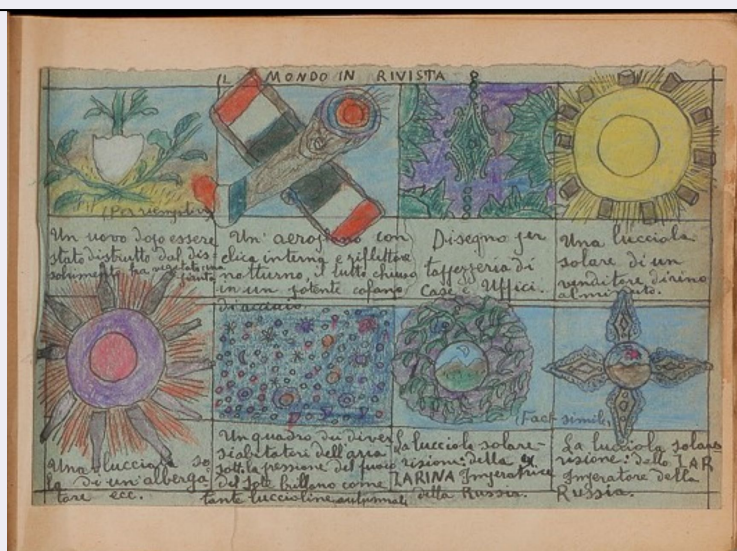 IL MONDO IN RIVISTA
(Per riempitivo)
Un uovo dopo essere
stato distrutto dal dis-
solvimento ha vegetato una pianta
Un' aeroplano con
elica interna e riflettore
notturno, il tutto chiuso
in un potente cofano
di acciaio
Disegno per
tappezzeria di
Case e Uffici.
Una lucciola
solare di un
venditore di vino
al minuto.
Una lucciola so
la di un alberga-
tore ecc.
Un quadro dei diver
si abitatori dell'aria
sotto la pressione del fuoco
del Sole brillano come
tante luccioline autunnali
La lucciola solare-
visione: della ex
ZARINA Imperatrice
della Russia.
(Fac-simile)
La lucciola solare
visione: dello ZAR
Imperatore della
Russia.